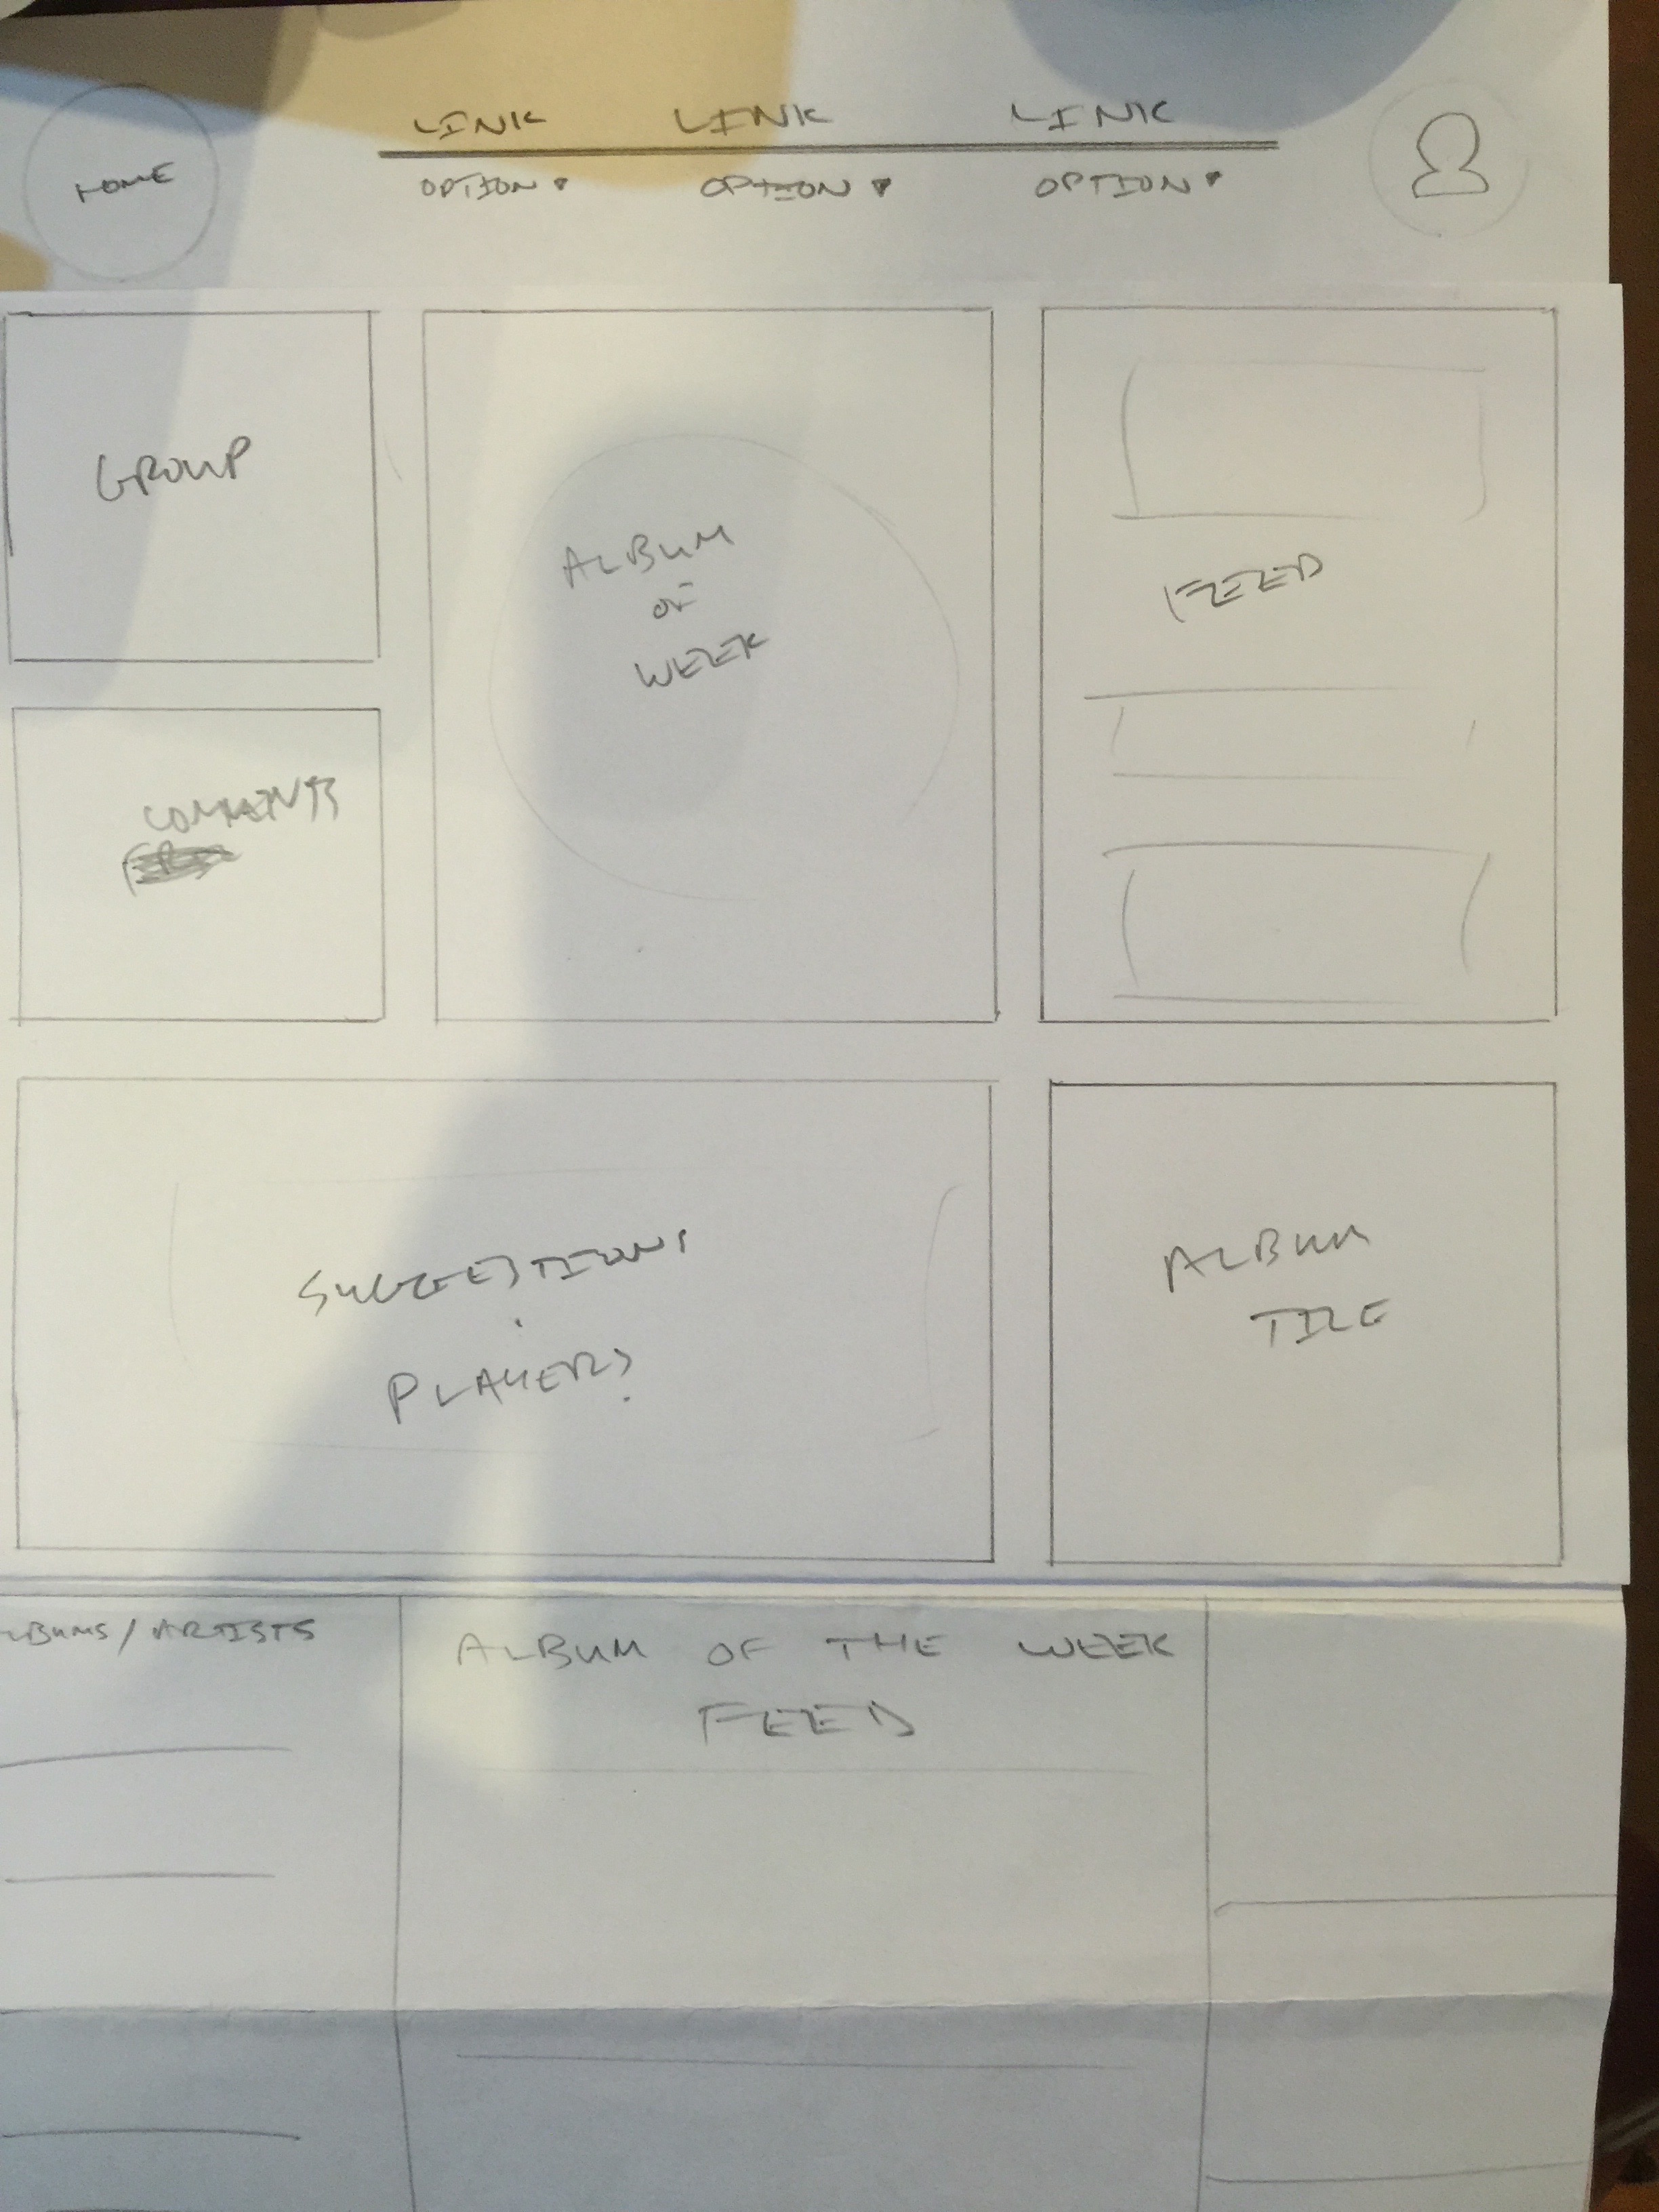 HOME
LINK LINK LINK
OPTION OPTION OPTION
GROUP
ALBUM
OF
WEEK
FEED
COMMENTS
SUGGESTIONS
PLAYERS
ALBUM
TILE
LBUMS / ARTISTS
ALBUM OF THE WEEK
FEED